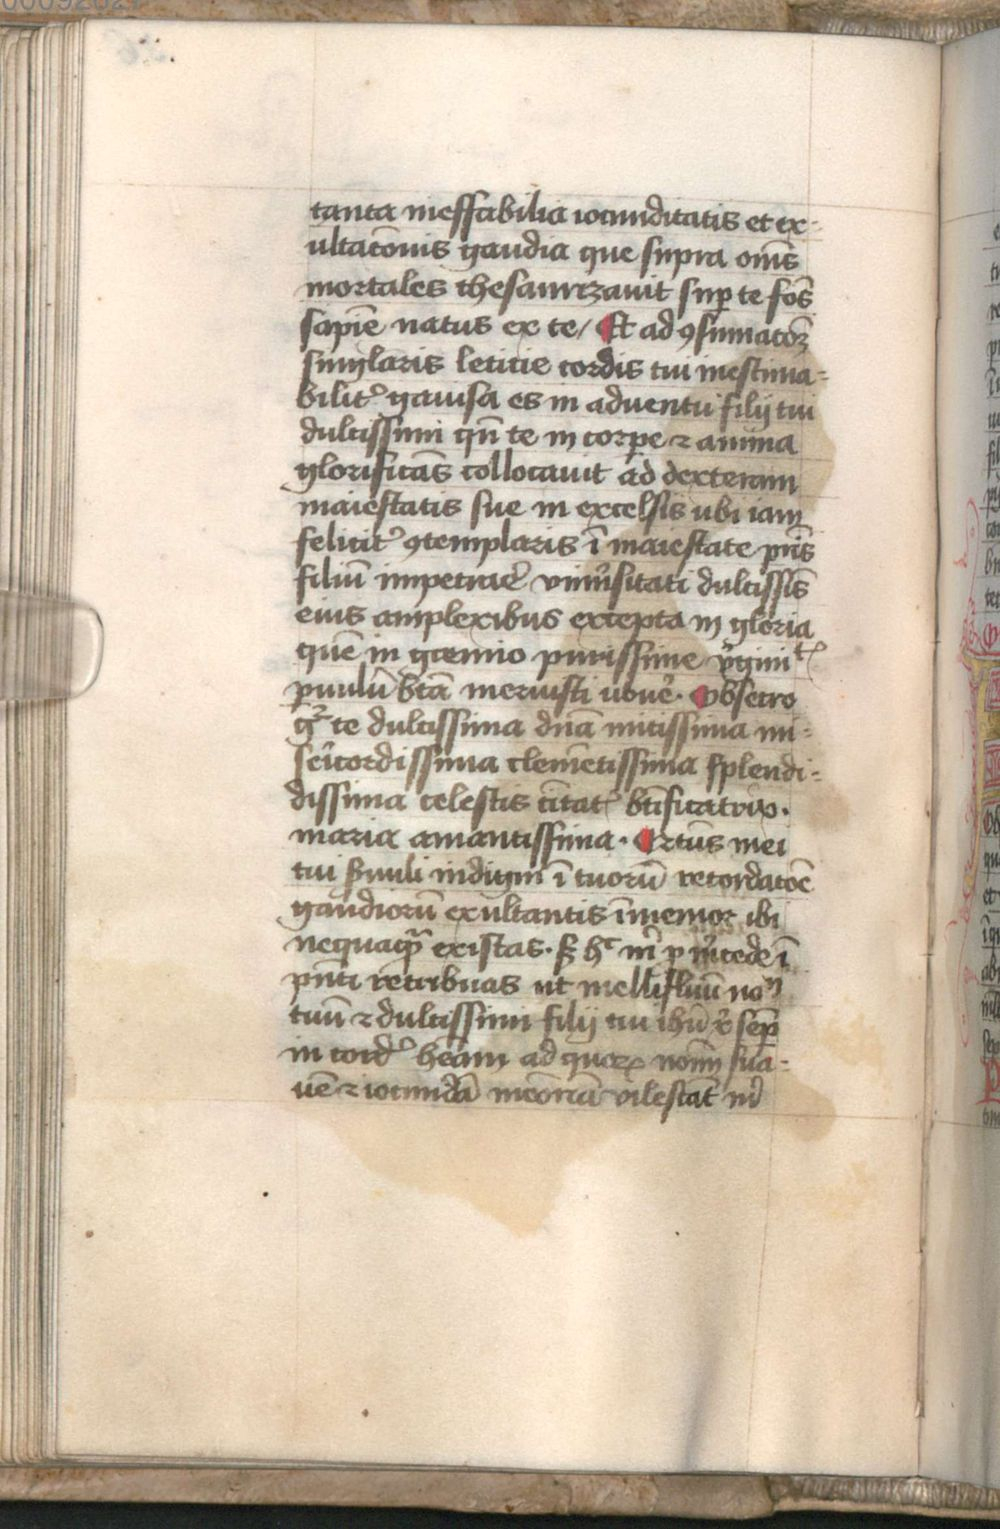 tanta ineffabilia iocunditatis et ex-
ultatōnis gaudia que supra om̄s
mortales thesaurizauit sup te fōs
sapīe natus ex te / Et ad ꝯsumatōꝫ
singlaris leticie cordis tui inestima-
bilit᷑ gauisa es in aduentu filij tui
dulcissimi qn̄ te in corpe ⁊ anima
glorificās collocauit ad dexteram
maiestatis sue in excelsis ubi iam
felicit᷑ ꝯtemplaris ī maiestate pr̄is
filiū impetrae᷑ vniu᷑sitati dulcissīs
eius amplexibus excepta in gloria
quē in gremio purissime v᷑gini
puulū bt̄ā meruisti uoue᷑. Obsecro
g᷑ te dulcissima dn̄a mitissima mi-
sēicordissima clemētissima splendi-
dissima celestis ciitat᷑ bt̄ificatrix.
maria amantissima. Ortūs mei
tui s᷑uuli indigni ī tuorū recordatōe
gaudiorū exultantis īmemor ibi
nequaq̄ existas. sꝫ hᶜ m̄ p m᷑cede ī
pn̄ti retribuas ut mellifluū noᵐ
tuū ⁊ dulcissimi filij tui ihū x᷑ sep̄
in cord᷑ hēam ad quoꝝ nōīm sua-
uē ⁊ iocundā memōriā vilescāt m̄